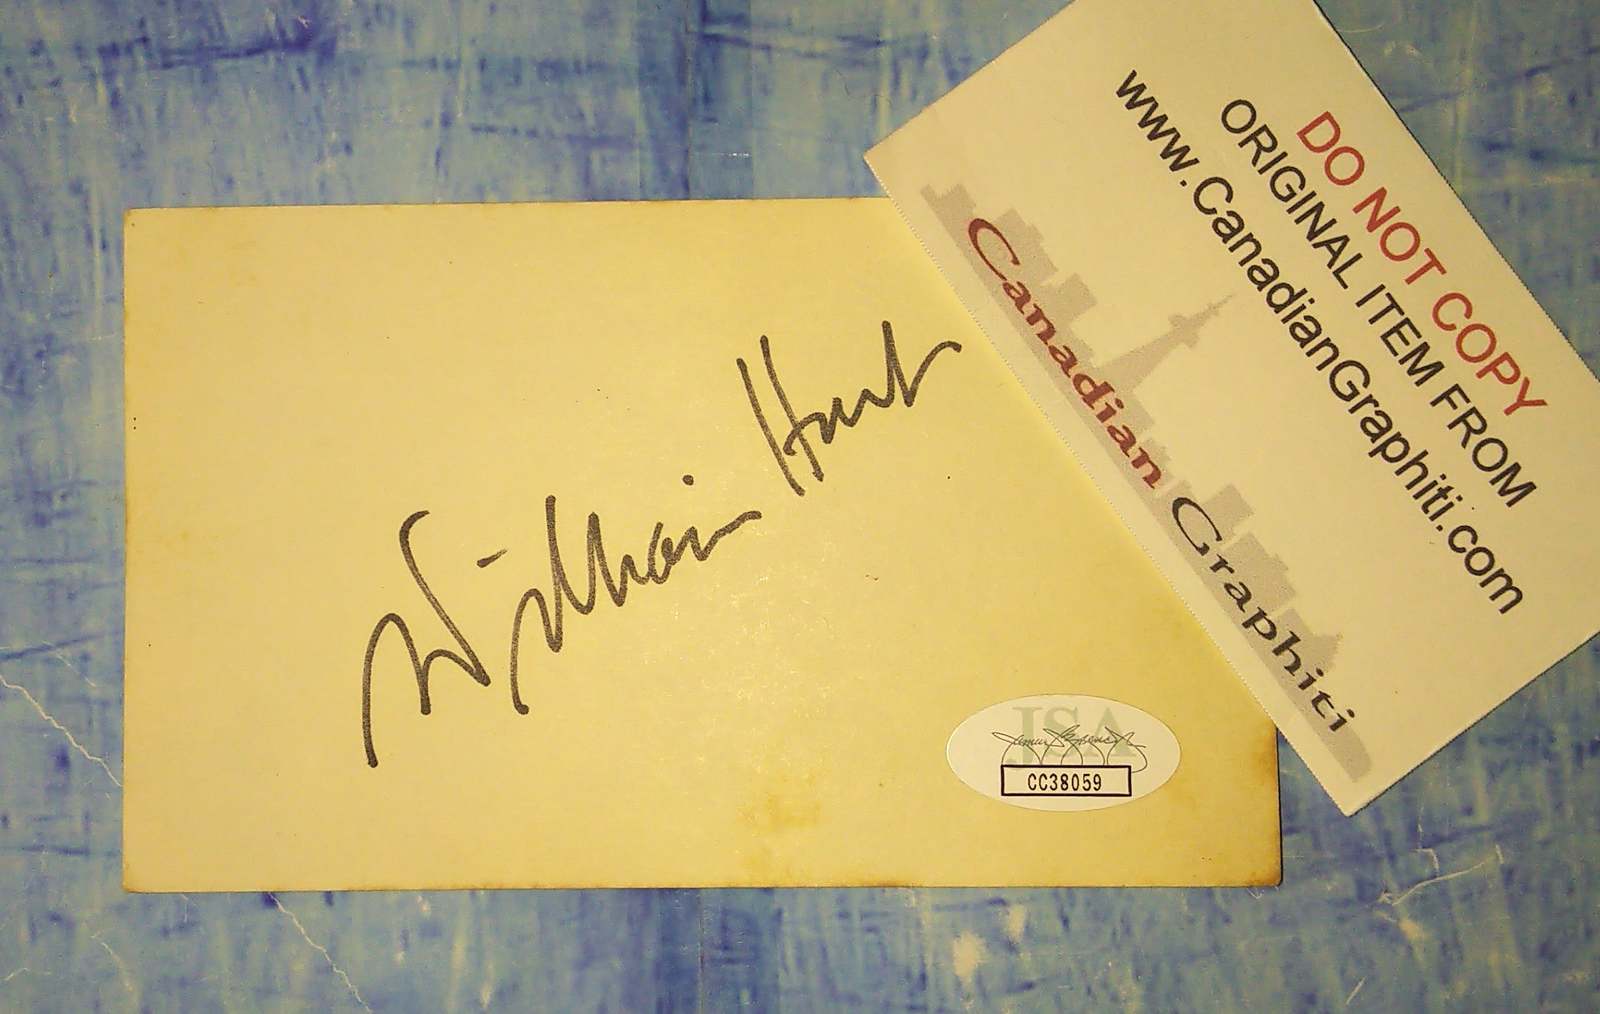 William Hurt
JSA
CC38059
DO NOT COPY
ORIGINAL ITEM FROM
www.CanadianGraphiti.com
Canadian Graphiti